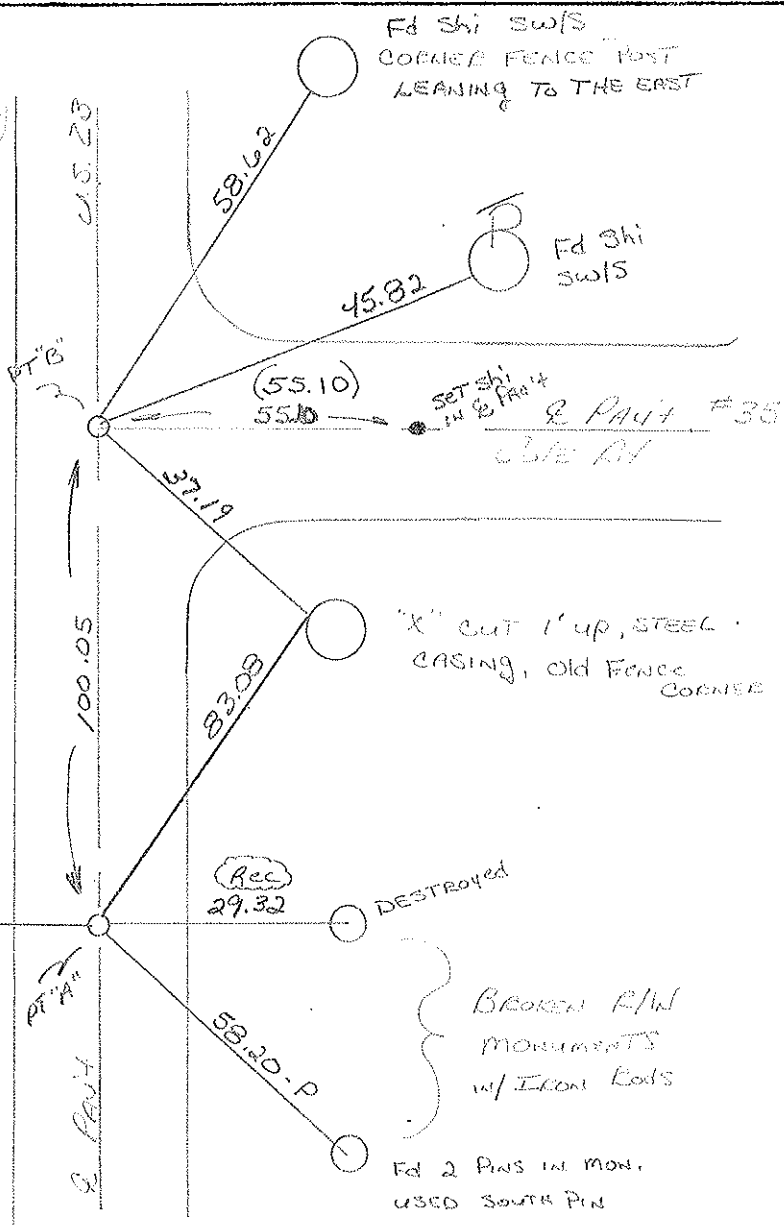 Fd Shi SW/S
CORNER FENCE POST
LEANING TO THE EAST
U.S. 23
58.62
P
Fd Shi
SW/S
45.82
PT "B"
(55.10)
55.10
SET Shi
IN ℄ PAV't
℄ PAV't #35
37.19
"X" CUT 1' up, STEEL
CASING, Old FENCE
CORNER
100.05
83.08
Rec
29.32
DESTROYed
PT "A"
BROKEN R/W
MONUMENTS
W/ IRON RODS
58.20-P
℄ PAV't
Fd 2 PINS IN MON.
USED SOUTH PIN